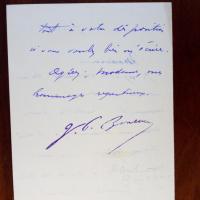 tout à votre disposition
si vous voulez bien m'écrire.
Agréez, Madame, mes
hommages respectueux.